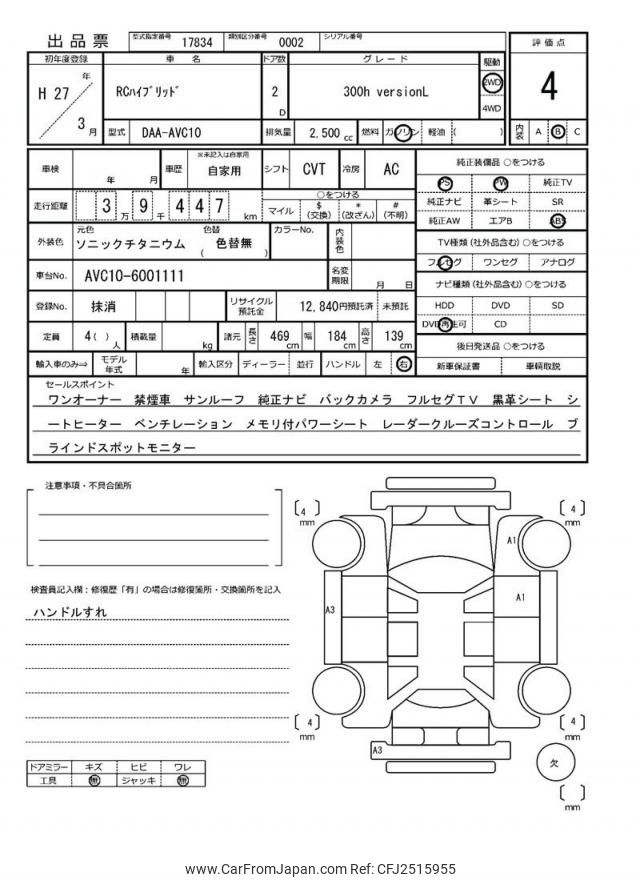 出品票 型式指定番号 17834 類別区分番号 0002 シリアル番号
初年度登録 車 名 ドア数 グレード 駆動 評価点
H 27 年 3 月 RCﾊｲﾌﾞﾘｯﾄﾞ 2 D 300h versionL 2WD 4WD 4
型式 DAA-AVC10 排気量 2,500 cc 燃料 ガソリン 軽油 ( ) 内装 A B C
車検 年 月 車歴 ※未記入は自家用 自家用 シフト CVT 冷房 AC
純正装備品 ○をつける
PS PW 純正TV
純正ナビ 革シート SR
純正AW エアB ABS
走行距離 3 万 9 千 4 4 7 km
○をつける
マイル $ (交換) * (改ざん) # (不明)
外装色 元色 ソニックチタニウム 色替 ( 色替無 ) カラーNo. 内装色
TV種類 (社外品含む) ○をつける
フルセグ ワンセグ アナログ
車台No. AVC10-6001111 名変期限 月 日
ナビ種類 (社外品含む) ○をつける
HDD DVD SD
DVD再生可 CD
登録No. 抹消 リサイクル預託金 12,840円預託済 未預託
定員 4( ) 人 積載量 kg 諸元 長さ 469 cm 幅 184 cm 高さ 139 cm
後日発送品 ○をつける
新車保証書 車輌取説
輸入車のみ⇒ モデル年式 年 輸入区分 ディーラー 並行 ハンドル 左 右
セールスポイント
ワンオーナー 禁煙車 サンルーフ 純正ナビ バックカメラ フルセグTV 黒革シート シ
ートヒーター ベンチレーション メモリ付パワーシート レーダークルーズコントロール ブ
ラインドスポットモニター
注意事項・不具合箇所
検査員記入欄：修復歴「有」の場合は修復箇所・交換箇所を記入
ハンドルすれ
ドアミラー キズ ヒビ ワレ
工具 無 ジャッキ 無
[ 4 ] mm
[ 4 ] mm
A1
A3
A1
[ 4 ] mm
[ 4 ] mm
A3
欠
[ ] mm
www.CarFromJapan.com Ref: CFJ2515955